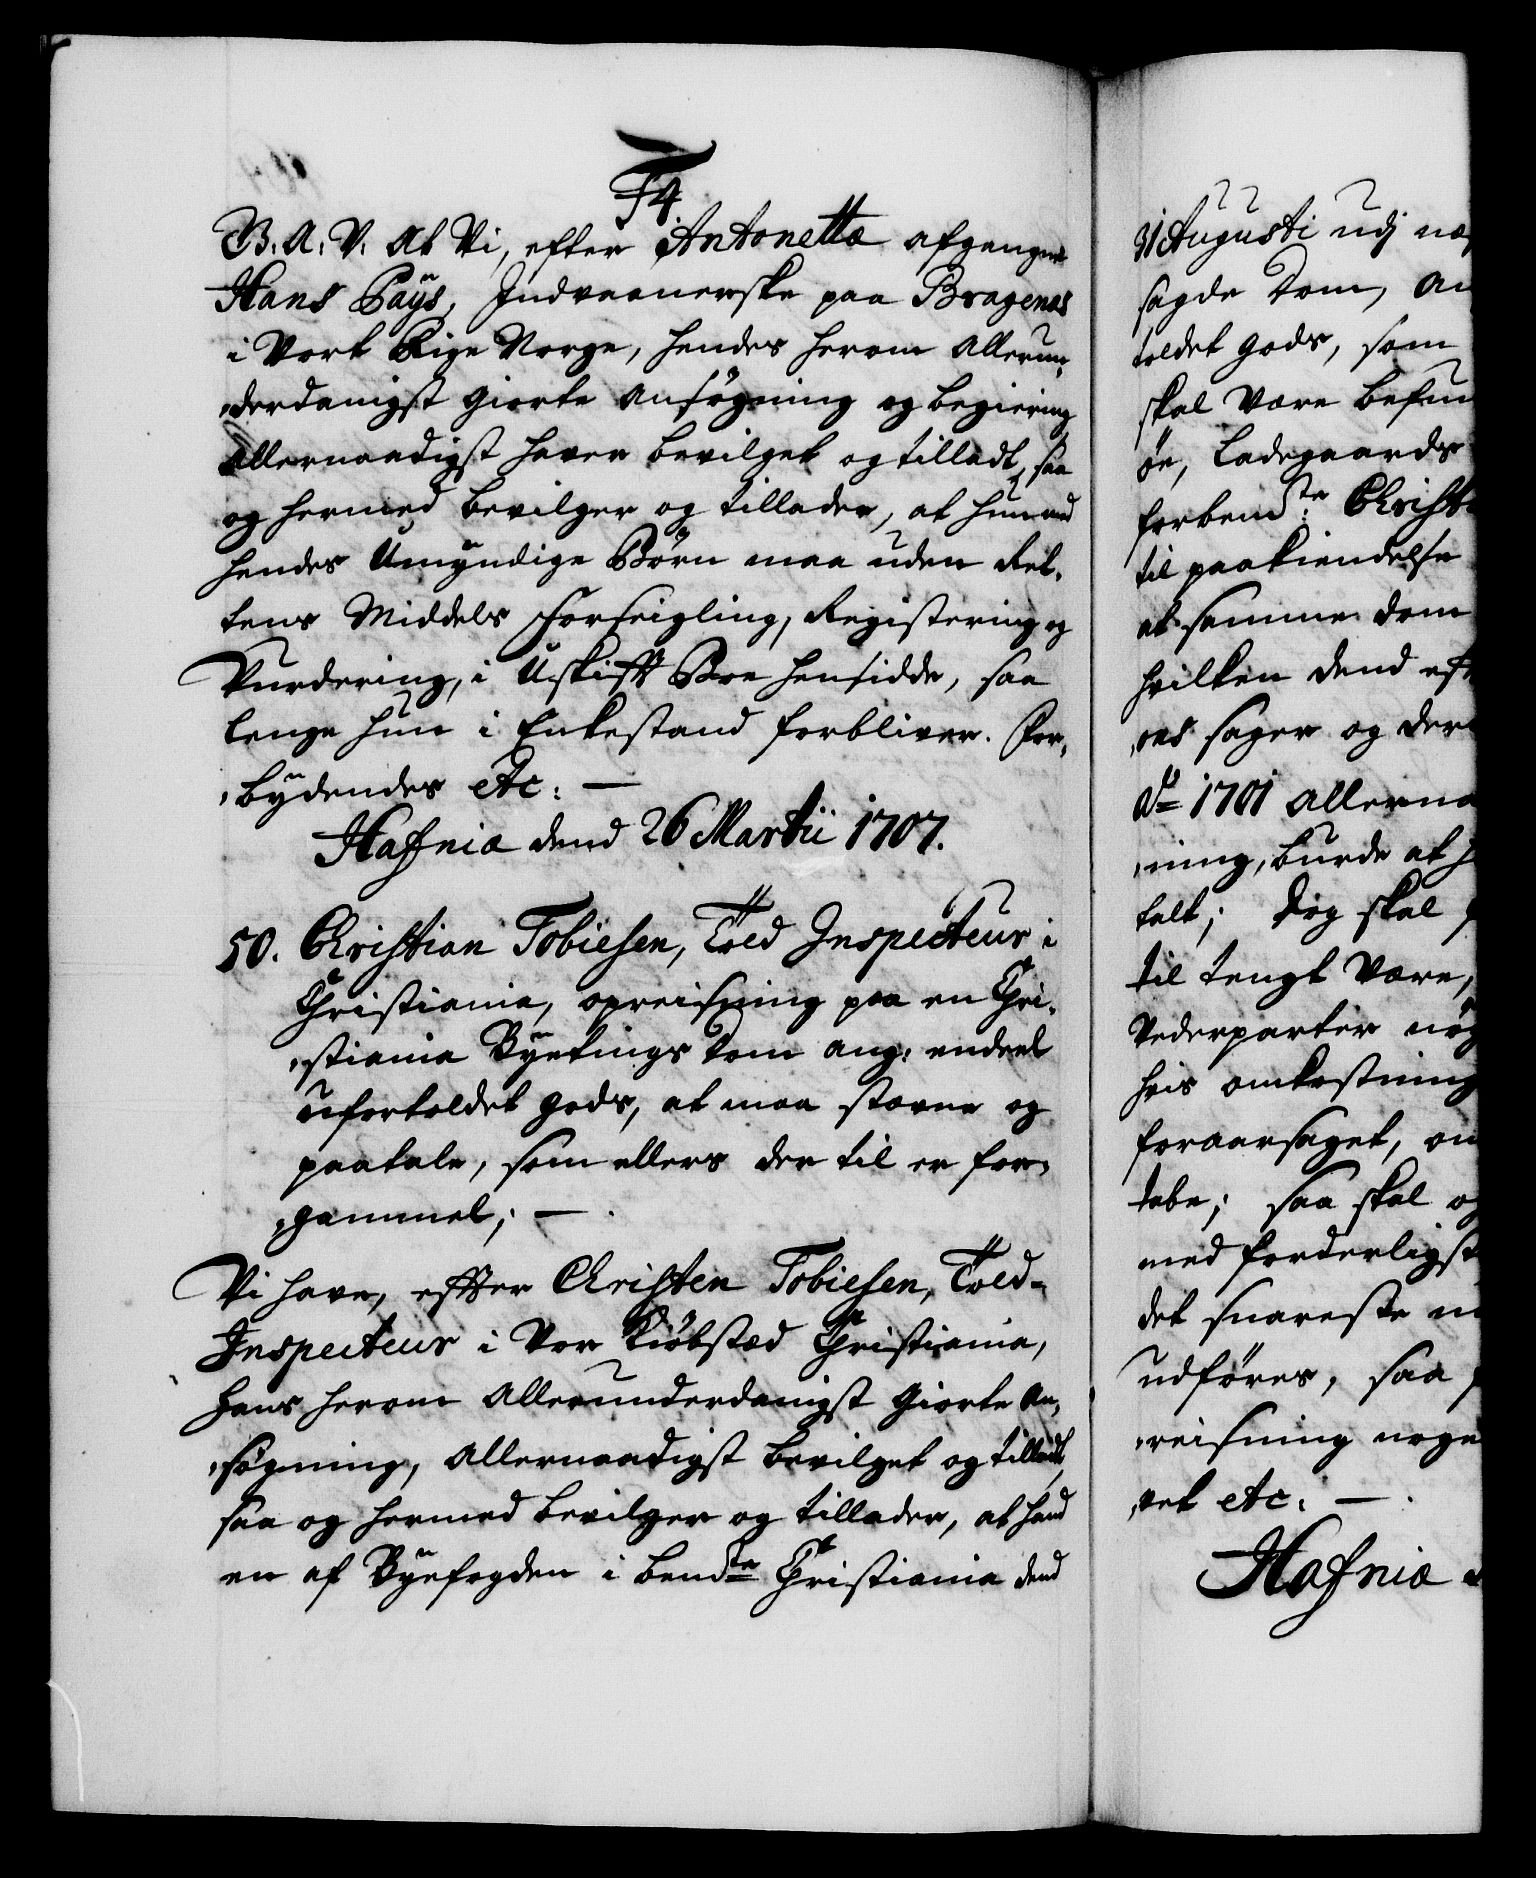 F4
B. A. V. At Vi, efter Antonettæ afgangne
Hans Pays, Indvaanerske paa Bragenes
i Vort Rige Norge, hendes herom Allerun-
derdanigst giorte Ansøgning og begiering
Allernaadigst haver bevilget og tilladt, saa
og hermed bevilger og tillader, at hun med
hendes Umyndige Børn maa uden Ret-
tens Middels Forseigling, Registering og
Vurdering, i Uskifft Boe hensidde, saa
lenge hun i Enkestand forbliver. For-
bydendes etc: —
Hafniæ dend 26 Martii 1707.
50. Christian Tobiesen, Told Inspecteur i
Christiania, opreisning paa en Chri-
stiania Byetings Dom ang: endeel
ufortoldet gods, at maa stævne og
paatale, som ellers der til er for-
gammel; —.
Vi have, effter Christen Tobiesen, Told-
Inspecteur i Vor Kiøbstæd Christiania,
hans herom Allerunderdanigst giorte An-
søgning, Allernaadigst bevilget og tilladt,
saa og hermed bevilger og tillader, at hand
en af Byefogden i bemdte Christiania dend
31 Augusti udj
sagde Dom, 
toldet gods, som
skal være 
øe, Ladegaards
forbemdte: 
til paakiendelse
at samme dom
hvilken dend
ons sager og
Ao 1701
ning, burde at
talt; dog skal
til tengt være,
Vederparter
hvis omkostning
foraarsaget,
tabe; saa skal
med forderligst
det snareste
udføres, saa
reisning
vet etc. —.
Hafniæ